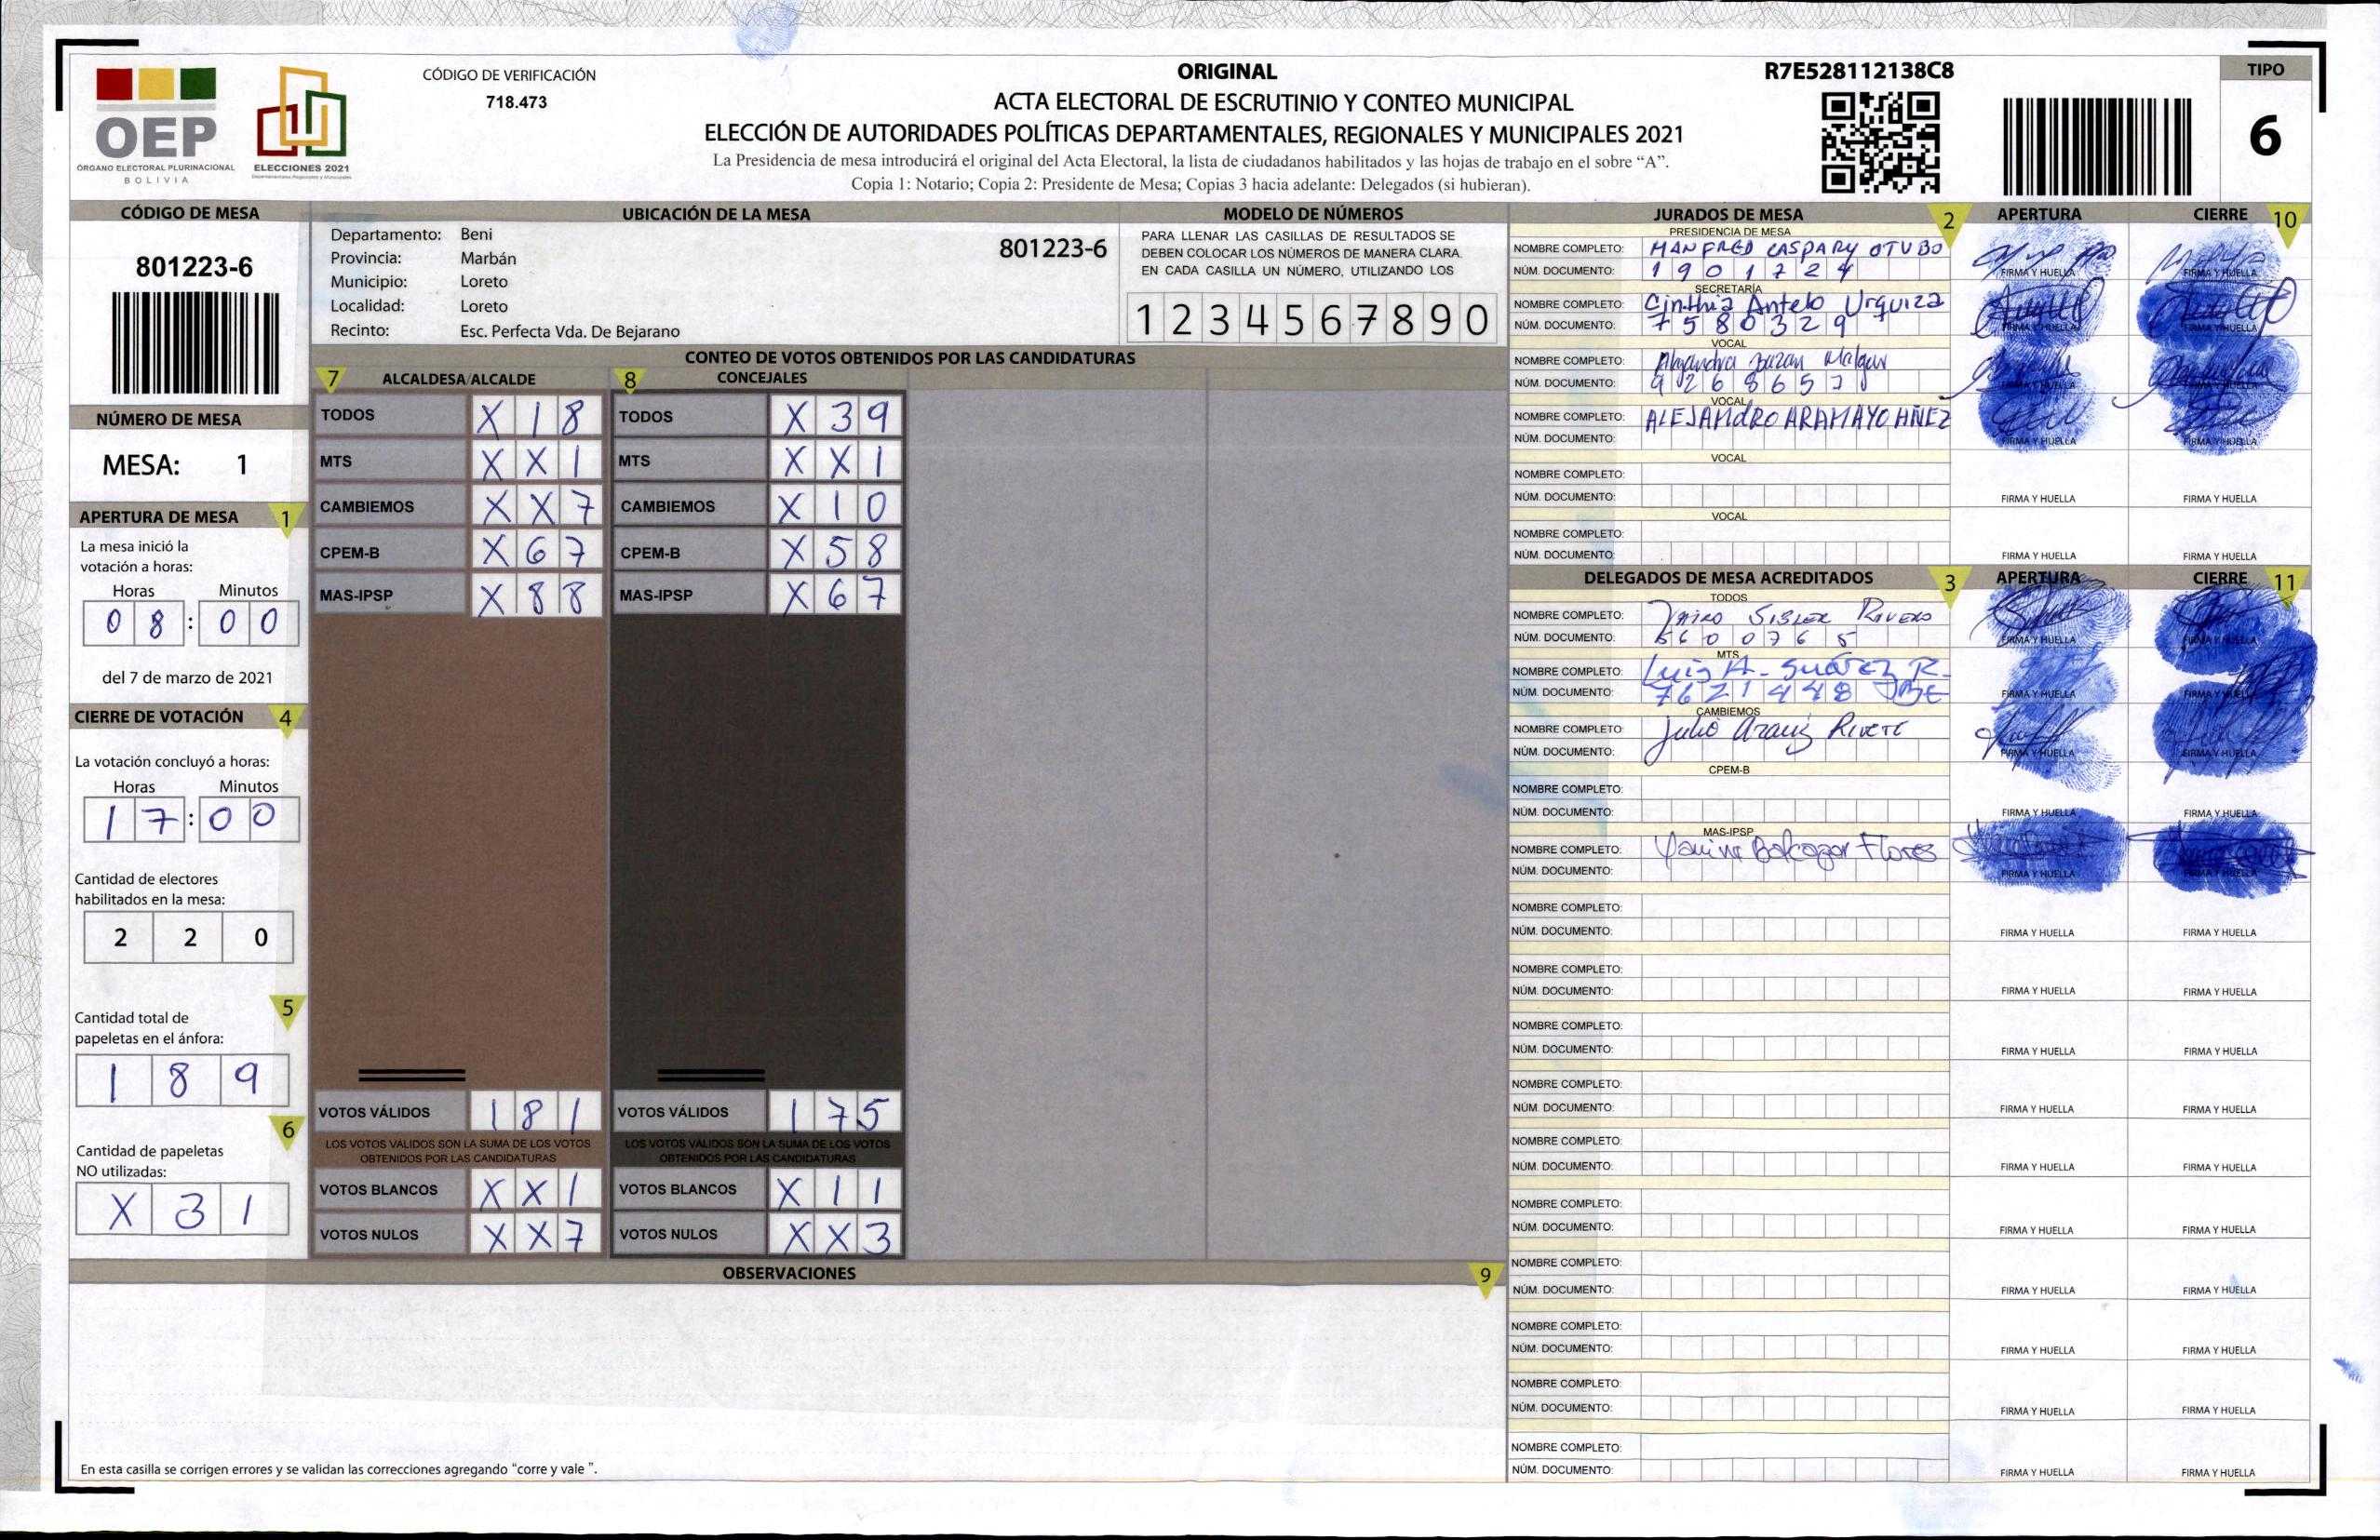 OEP
ÓRGANO ELECTORAL PLURINACIONAL
BOLIVIA
ELECCIONES 2021
CÓDIGO DE VERIFICACIÓN
718.473
ORIGINAL
ACTA ELECTORAL DE ESCRUTINIO Y CONTEO MUNICIPAL
ELECCIÓN DE AUTORIDADES POLÍTICAS DEPARTAMENTALES, REGIONALES Y MUNICIPALES 2021
La Presidencia de mesa introducirá el original del Acta Electoral, la lista de ciudadanos habilitados y las hojas de trabajo en el sobre “A”.
Copia 1: Notario; Copia 2: Presidente de Mesa; Copias 3 hacia adelante: Delegados (si hubieran).
R7E528112138C8
TIPO
6
CÓDIGO DE MESA
801223-6
NÚMERO DE MESA
MESA: 1
APERTURA DE MESA 1
La mesa inició la
votación a horas:
Horas Minutos
08:00
del 7 de marzo de 2021
CIERRE DE VOTACIÓN 4
La votación concluyó a horas:
Horas Minutos
17:00
Cantidad de electores
habilitados en la mesa:
2 2 0
5
Cantidad total de
papeletas en el ánfora:
1 8 9
6
Cantidad de papeletas
NO utilizadas:
X 3 1
UBICACIÓN DE LA MESA
Departamento: Beni
801223-6
Provincia: Marbán
Municipio: Loreto
Localidad: Loreto
Recinto: Esc. Perfecta Vda. De Bejarano
MODELO DE NÚMEROS
PARA LLENAR LAS CASILLAS DE RESULTADOS SE
DEBEN COLOCAR LOS NÚMEROS DE MANERA CLARA.
EN CADA CASILLA UN NÚMERO, UTILIZANDO LOS
1 2 3 4 5 6 7 8 9 0
CONTEO DE VOTOS OBTENIDOS POR LAS CANDIDATURAS
7 ALCALDESA/ALCALDE
TODOS X 1 8
MTS X X 1
CAMBIEMOS X X 7
CPEM-B X 6 7
MAS-IPSP X 8 8
VOTOS VÁLIDOS 1 8 1
LOS VOTOS VÁLIDOS SON LA SUMA DE LOS VOTOS
OBTENIDOS POR LAS CANDIDATURAS
VOTOS BLANCOS X X 1
VOTOS NULOS X X 7
8 CONCEJALES
TODOS X 3 9
MTS X X 1
CAMBIEMOS X 1 0
CPEM-B X 5 8
MAS-IPSP X 6 7
VOTOS VÁLIDOS 1 7 5
LOS VOTOS VÁLIDOS SON LA SUMA DE LOS VOTOS
OBTENIDOS POR LAS CANDIDATURAS
VOTOS BLANCOS X 1 1
VOTOS NULOS X X 3
OBSERVACIONES 9
En esta casilla se corrigen errores y se validan las correcciones agregando “corre y vale ”.
JURADOS DE MESA 2 APERTURA CIERRE 10
PRESIDENCIA DE MESA
NOMBRE COMPLETO: MANFRED CASPARY OTUBO
NÚM. DOCUMENTO: 1901724
FIRMA Y HUELLA FIRMA Y HUELLA
SECRETARÍA
NOMBRE COMPLETO: Cinthia Antelo Urquiza
NÚM. DOCUMENTO: 7580329
FIRMA Y HUELLA FIRMA Y HUELLA
VOCAL
NOMBRE COMPLETO: Bazan
NÚM. DOCUMENTO:
FIRMA Y HUELLA FIRMA Y HUELLA
VOCAL
NOMBRE COMPLETO: ALEJANdRO ARAMAYO
NÚM. DOCUMENTO:
FIRMA Y HUELLA FIRMA Y HUELLA
VOCAL
NOMBRE COMPLETO:
NÚM. DOCUMENTO:
FIRMA Y HUELLA FIRMA Y HUELLA
VOCAL
NOMBRE COMPLETO:
NÚM. DOCUMENTO:
FIRMA Y HUELLA FIRMA Y HUELLA
DELEGADOS DE MESA ACREDITADOS 3 APERTURA CIERRE 11
TODOS
NOMBRE COMPLETO: Rivero
NÚM. DOCUMENTO: 5600765
FIRMA Y HUELLA FIRMA Y HUELLA
MTS
NOMBRE COMPLETO: Luis A. Suárez R.
NÚM. DOCUMENTO: 7621448
FIRMA Y HUELLA FIRMA Y HUELLA
CAMBIEMOS
NOMBRE COMPLETO: Julio Arauz
NÚM. DOCUMENTO:
FIRMA Y HUELLA FIRMA Y HUELLA
CPEM-B
NOMBRE COMPLETO:
NÚM. DOCUMENTO:
FIRMA Y HUELLA FIRMA Y HUELLA
MAS-IPSP
NOMBRE COMPLETO: Flores
NÚM. DOCUMENTO:
FIRMA Y HUELLA FIRMA Y HUELLA
NOMBRE COMPLETO:
NÚM. DOCUMENTO:
FIRMA Y HUELLA FIRMA Y HUELLA
NOMBRE COMPLETO:
NÚM. DOCUMENTO:
FIRMA Y HUELLA FIRMA Y HUELLA
NOMBRE COMPLETO:
NÚM. DOCUMENTO:
FIRMA Y HUELLA FIRMA Y HUELLA
NOMBRE COMPLETO:
NÚM. DOCUMENTO:
FIRMA Y HUELLA FIRMA Y HUELLA
NOMBRE COMPLETO:
NÚM. DOCUMENTO:
FIRMA Y HUELLA FIRMA Y HUELLA
NOMBRE COMPLETO:
NÚM. DOCUMENTO:
FIRMA Y HUELLA FIRMA Y HUELLA
NOMBRE COMPLETO:
NÚM. DOCUMENTO:
FIRMA Y HUELLA FIRMA Y HUELLA
NOMBRE COMPLETO:
NÚM. DOCUMENTO:
FIRMA Y HUELLA FIRMA Y HUELLA
NOMBRE COMPLETO:
NÚM. DOCUMENTO:
FIRMA Y HUELLA FIRMA Y HUELLA
NOMBRE COMPLETO:
NÚM. DOCUMENTO:
FIRMA Y HUELLA FIRMA Y HUELLA